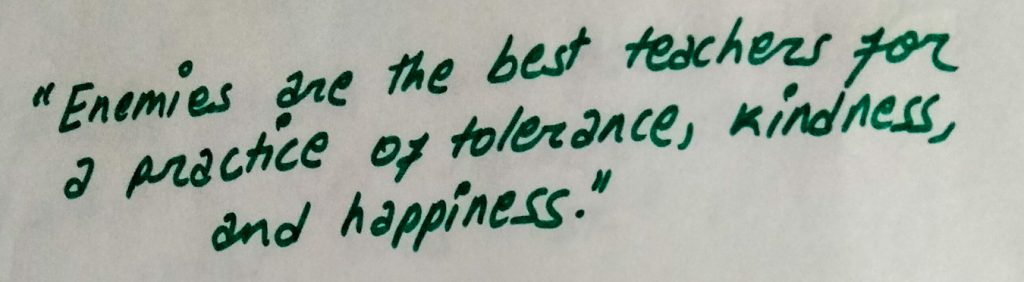 "Enemies are the best teachers for
a practice of tolerance, kindness,
and happiness."